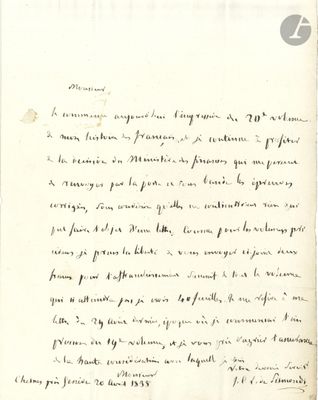 Monsieur,
Je commence aujourd'hui l'impression du 20e volume
de mon histoire des Français, et je continue à profiter
de la décision du Ministère des finances qui me permet
de renvoyer par la poste et sous bande les épreuves
corrigées, sous condition qu'elles ne contiendront rien qui
put faire l'objet d'une lettre. Comme pour les volumes
je prens la liberté de vous envoyer deux
francs pour l'affranchissement de tout le volume
qui n'atteindra pas je crois 40 feuilles. Je me réfère à ma
lettre du 29 Août dernier, époque où je commençai l'im
pression du 19e volume, et je vous prie d'agréer l'assurance
de la haute considération avec laquelle je suis
Monsieur
Votre dévoué
J. C. L. de Sismondi
Chesnes près Genève 20 Avril 1835